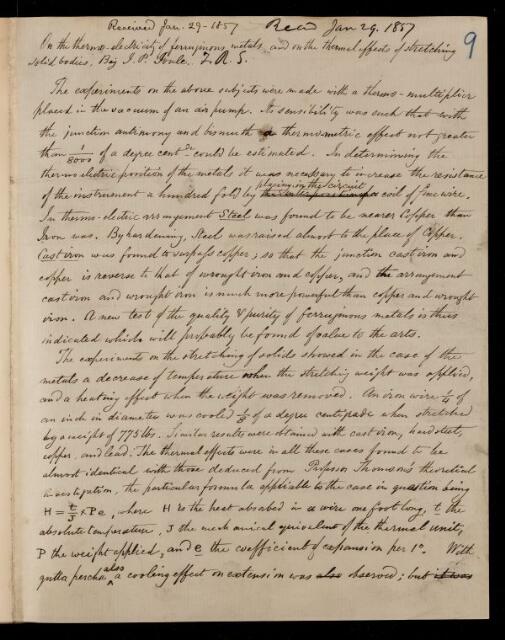 Received Jan. 29 - 1857 Read Jan 29. 1857
9
On the thermo-electricity of ferruginous metals, and on the thermal effects of stretching
solid bodies, By J. P. Joule. F.R.S.
The experiments on the above subjects were made with a thermo-multiplier
placed in the vacuum of an air pump. Its sensibility was such that with
the junction antimony and bismuth a thermometric effect not greater
than 1/8000 of a degree cent^de could be estimated. In determining the
thermo electric position of the metals it was necessary to increase the resistance
placing in the circuit
of the instrument a hundred fold by a coil of fine wire.
In thermo-electric arrangement Steel was found to be nearer Copper than
Iron was. By hardening, Steel was raised almost to the place of Copper.
Cast iron was found to surpass copper; so that the junction cast iron and
copper is reverse to that of wrought iron and copper, and the arrangement
cast iron and wrought iron is much more powerful than copper and wrought
iron. A new test of the quality & purity of ferruginous metals is thus
indicated which will probably be found of value to the arts.
The experiments on the stretching of solids showed in the case of the
metals a decrease of temperature when the stretching weight was applied,
and a heating effect when the weight was removed. An iron wire 1/4 of
an inch in diameter was cooled 1/8 of a degree centigrade when stretched
by a weight of 775 lbs. Similar results were obtained with cast iron, hard steel,
copper, and lead. The thermal effects were in all these cases found to be
almost identical with those deduced from Professor Thomson's theoretical
investigation, the particular formula applicable to the case in question being
H = t/J × Pe, where H is the heat absorbed in a wire one foot long, t the
absolute temperature, J the mechanical equivalent of the thermal unit,
P the weight applied, and e the coefficient of expansion per 1°. With
gutta percha also a cooling effect on extension was also observed; but it was